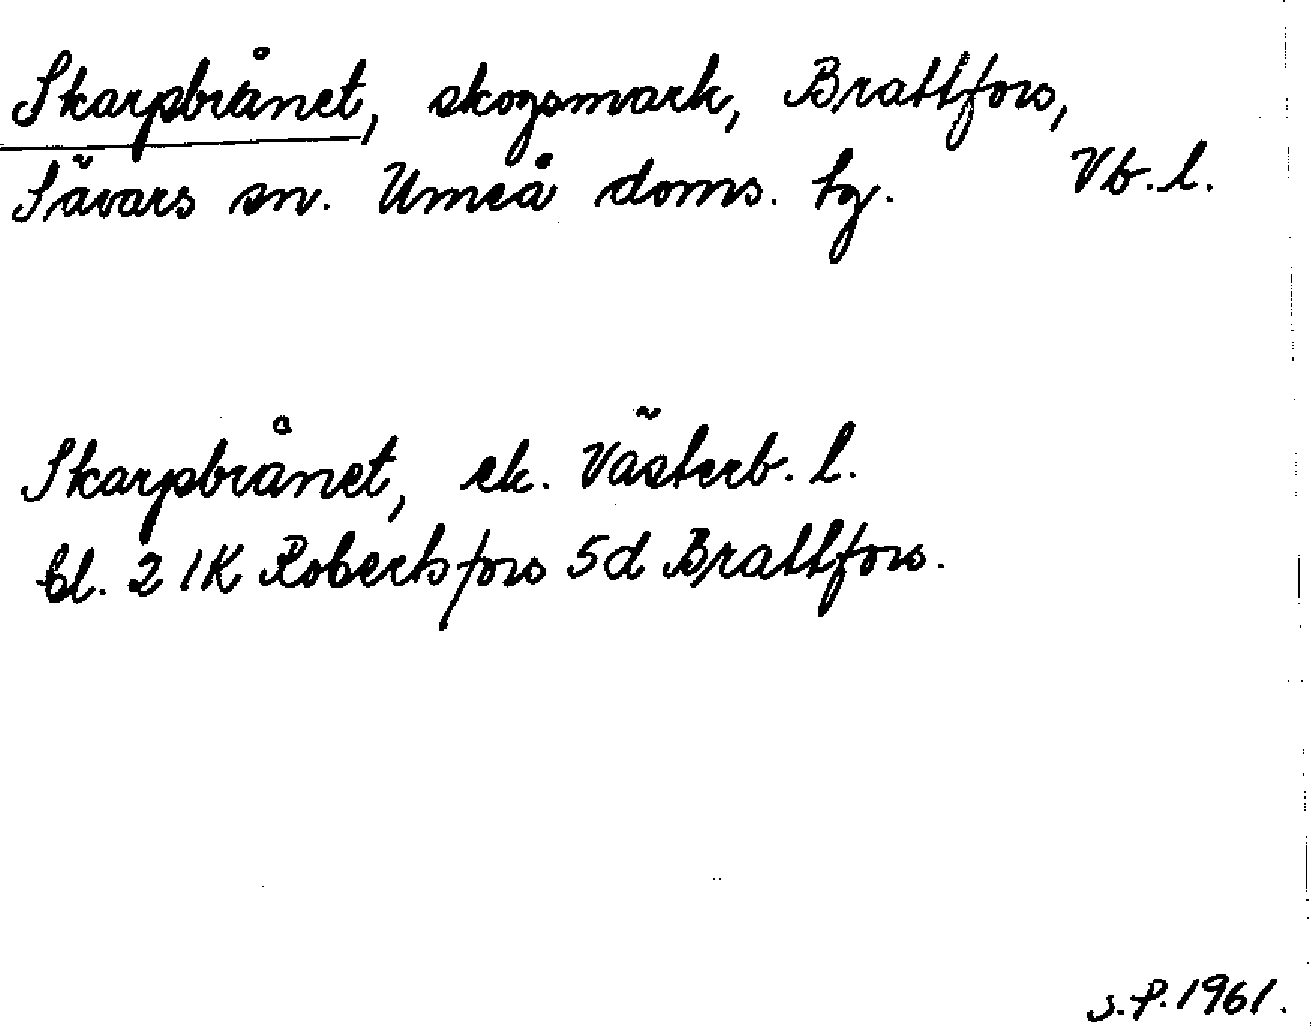 Skarpbrånet, skogsmark, Brattfors,
Sävars sn. Umeå doms. tg. Vb. l.
Skarpbrånet, ek. Västerb. l.
bl. 21K Robertsfors 5d Brattfors.
S.P. 1961.